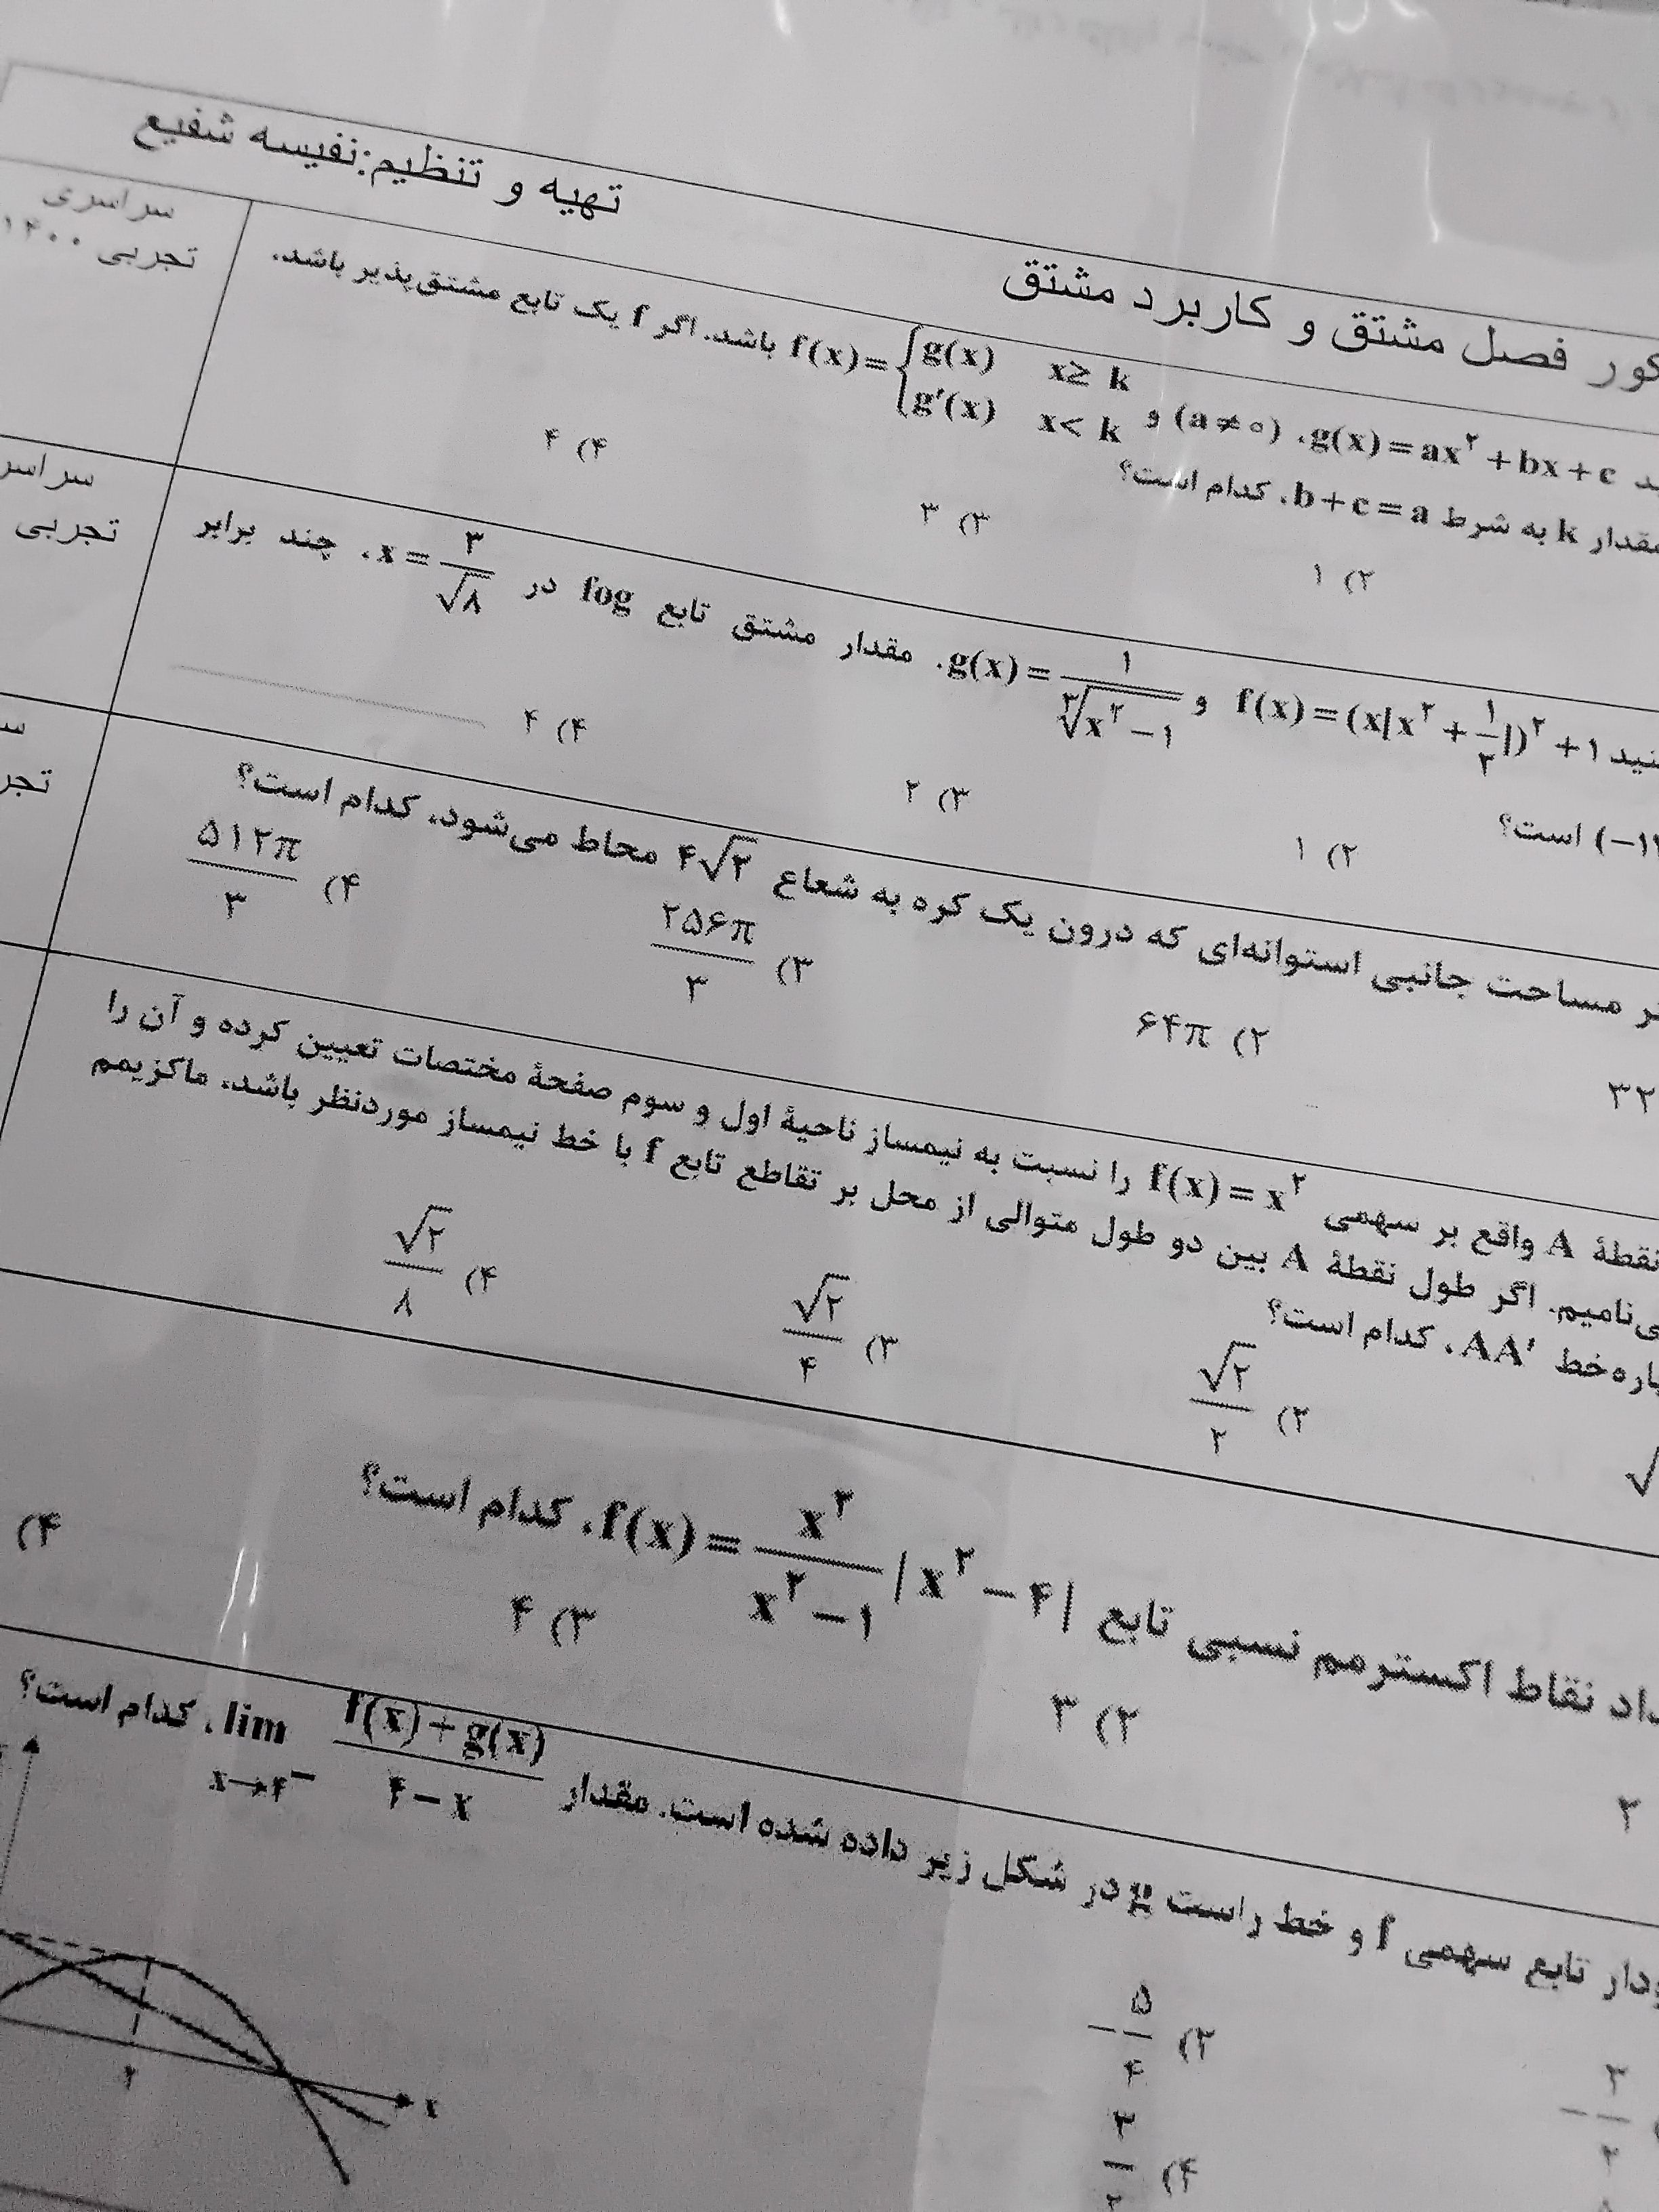 تهیه و تنظیم:نفیسه شفیع
فصل مشتق و کاربرد مشتق
سراسری
تجربی ۱۴۰۰
g(x)=ax²+bx+c، (a≠۰) و f(x)={g(x) x≥k, g′(x) x<k باشد. اگر f یک تابع مشتق‌پذیر باشد،
مقدار k به شرط b+c=a، کدام است؟
۲) ۱ ۳) ۳ ۴) ۴
تجربی
f(x)=(x|x²+۱/۲|)²+۱ و g(x)=۱/∛(x²−۱)، مقدار مشتق تابع fog در x=۳/√۸، چند برابر
است؟
۲) ۱ ۳) ۲ ۴) ۴
مساحت جانبی استوانه‌ای که درون یک کره به شعاع ۴√۲ محاط می‌شود، کدام است؟
۲) ۶۴π ۳) ۲۵۶π/۳ ۴) ۵۱۲π/۳
نقطهٔ A واقع بر سهمی f(x)=x² را نسبت به نیمساز ناحیهٔ اول و سوم صفحهٔ مختصات تعیین کرده و آن را
می‌نامیم. اگر طول نقطهٔ A بین دو طول متوالی از محل بر تقاطع تابع f با خط نیمساز موردنظر باشد، ماکزیمم
پاره‌خط AA′، کدام است؟
۲) √۲/۲ ۳) √۲/۴ ۴) √۲/۸
نقاط اکسترمم نسبی تابع f(x)=x²/(x²−۱)|x²−۴|، کدام است؟
۲ ۲) ۳ ۳) ۴ ۴)
تابع سهمی f و خط راست g در شکل زیر داده شده است. مقدار lim x→۴⁻ (f(x)+g(x))/(۴−x)، کدام است؟
−۳/۲ ۲) −۵/۴
۴) ۳/۲
۲
x